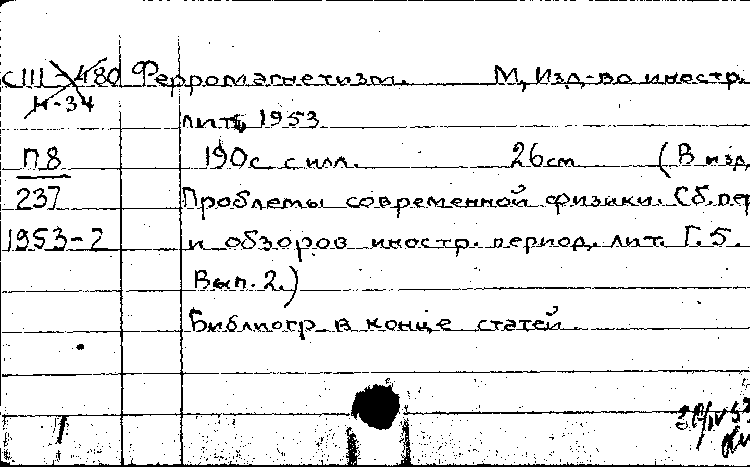 СIII-480 Ферромагнетизм. М, Изд-во иностр.
Н-34
лит, 1953
П8 190с. с илл. 26см (В изд.
237 Проблемы современной физики. Сб. пер
1953-2 и обзоров иностр. период. лит. Г. 5.
Вып. 2.)
Библиогр в конце статей.